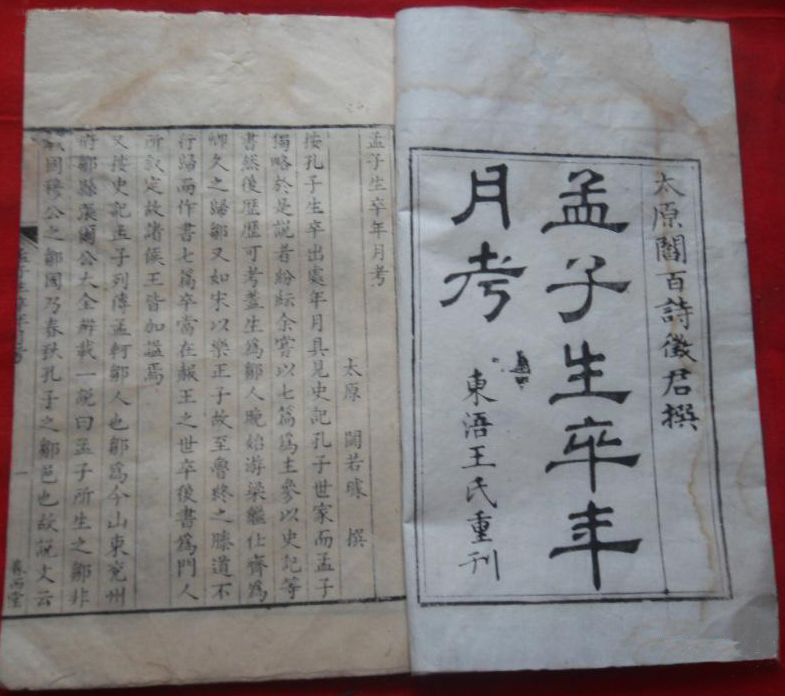 太原閻百詩徵君撰
孟子生卒年
月考
東浯王氏重刊
孟子生卒年月考
太原 閻若璩 撰
按孔子生卒出處年月具見史記孔子世家而孟子
獨略於是説者紛紜余嘗以七篇爲主參以史記等
書然後歷歷可考蓋生爲鄒人晚始游梁繼仕齊爲
卿久之歸鄒又如宋以樂正子故至魯終之滕道不
行歸而作書七篇卒當在赧王之世卒後書爲門人
所敘定故諸侯王皆加諡焉
又按史記孟子列傳孟軻鄒人也鄒爲今山東兗州
府鄒縣張爾公大全辨載一說曰孟子所生之鄒非
國穆公之鄒國乃春秋孔子之鄒邑也故說文云
孟子生卒年月考
一
西堂